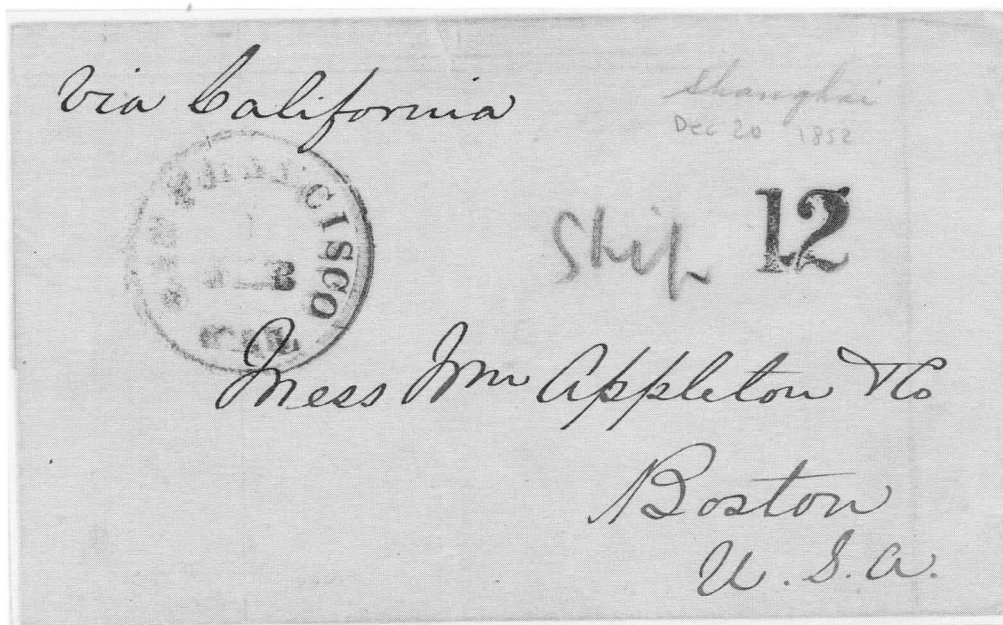 via California
Shanghai
Dec 20 1852
SAN FRANCISCO
CAL.
8
Ship 12
Mess Wm Appleton & Co
Boston
U. S. A.